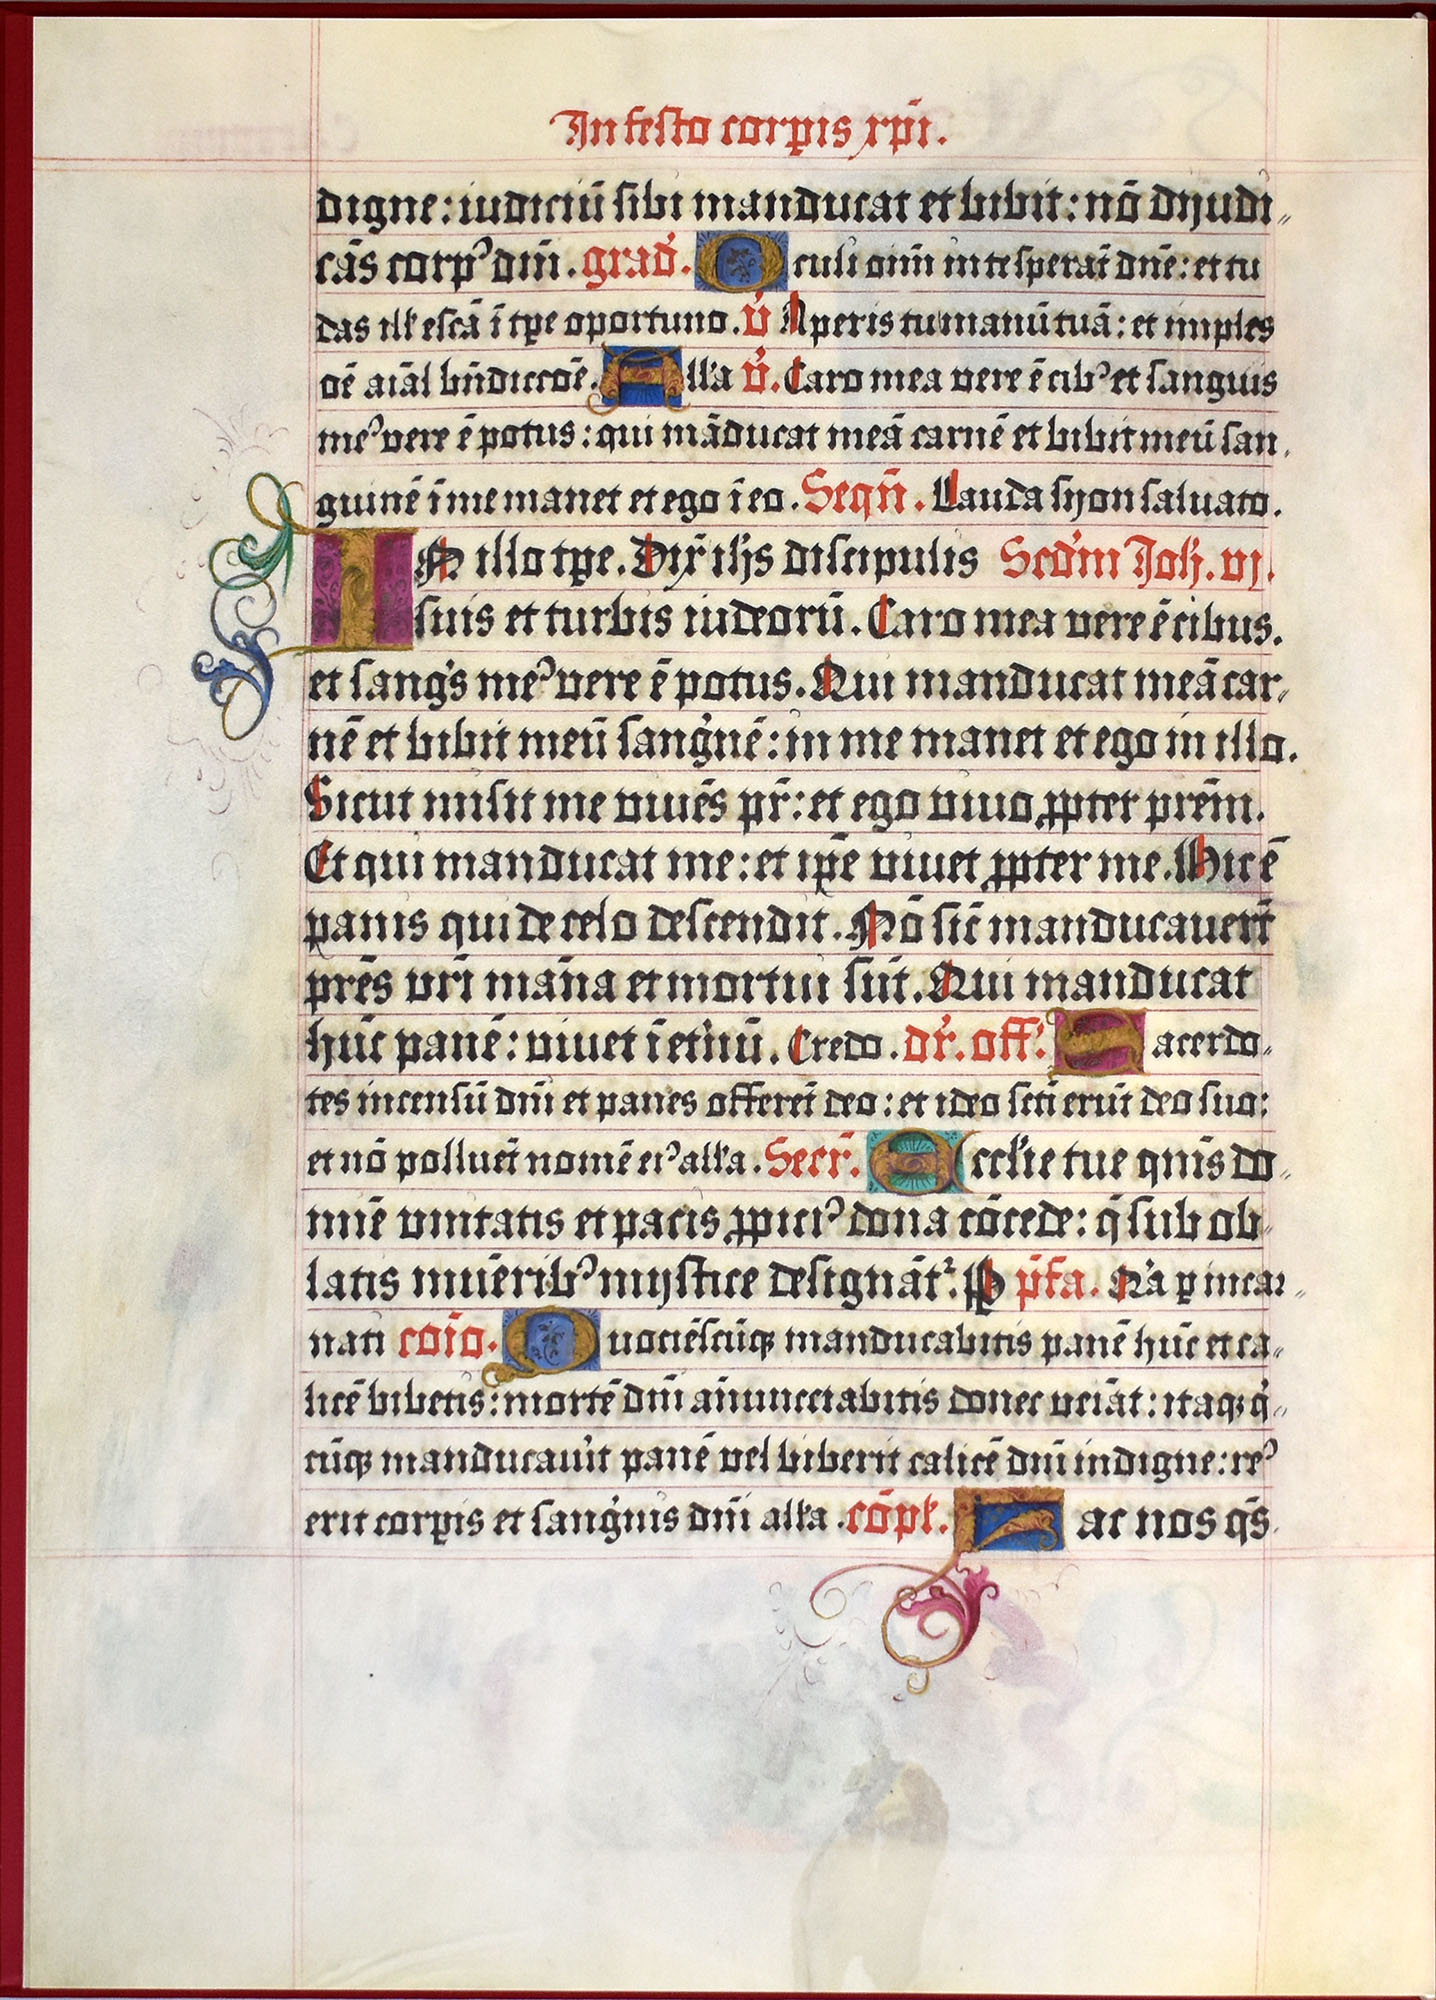 In festo corꝑis xp̄i.
digne: iudiciū sibi manducat et bibit: nō dijudi⸗
cās corpꝰ dn̄i. grad̛. Oculi oīm in te sperāt dn̄e: et tu
das ill̛ escā ī tꝑe oportuno. v̛ Aperis tu manū tuā: et imples
oē aīal bn̄diccōe. All̛a v̛. Caro mea vere ē cibꝰ et sanguis
meꝰ vere ē potus: qui māducat meā carnē et bibit meū san
guinē ī me manet et ego ī eo. Seqn̄. Lauda syon saluato.
IN illo tꝑe. Dix̛ ihs discipulis Scd̛m Joh̛. vj.
suis et turbis iudeorū. Caro mea vere ē cibus.
et sang̛s meꝰ vere ē potus. Qui manducat meā car⸗
nē et bibit meū sang̛nē: in me manet et ego in illo.
Sicut misit me viuēs pr̄: et ego viuo ꝓpter prēm.
Et qui manducat me: et ip̄e viuet ꝓpter me. Hic ē
panis qui de celo descendit. Nō sic̄ manducauer̄t
prēs vr̄i mān̄a et mortui sūt. Qui manducat
hūc panē: viuet ī et̛nū. Credo. dr̛. off̛. Sacerdo⸗
tes incensū dn̄i et panes offerēt deo: et ideo scti erūt deo suo:
et nō polluēt nomē eiꝰ all̛a. Secr̄. Eccl̛ie tue qn̄is do⸗
mīe vnitatis et pacis ꝓpiciꝰ dona cōcede: q̄ sub ob⸗
latis mūeribꝰ mystice designāt᷑. P p̄fa. Q̛a ꝑ incar⸗
nati cōio. Quociēscūqꝫ manducabitis panē hūc et ca⸗
licē bibetis: mortē dn̄i an̄uncciabitis donec veīat: itaqꝫ q̛⸗
cūqꝫ manducaưit panē vel biberit calicē dn̄i indigne: reꝰ
erit corꝑis et sang̛nis dn̄i all̛a. cōpl̛. Fac nos qs̄